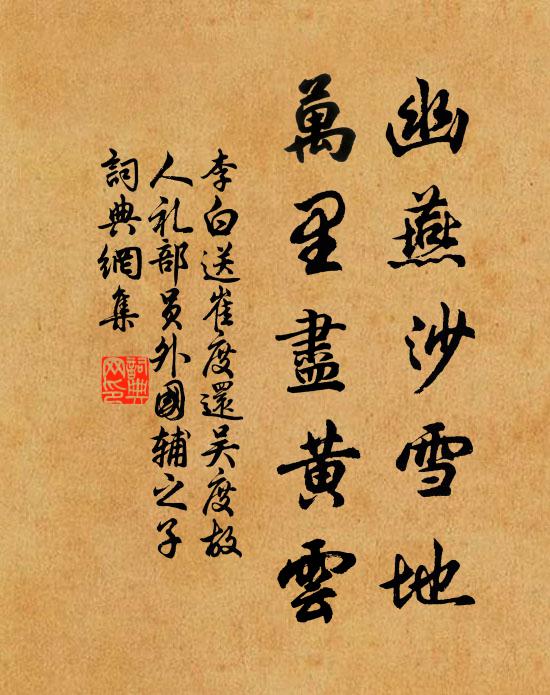 幽燕沙雪地
萬里盡黄雲
李白送崔度還吴度故
人礼部员外國辅之子
詞典網集
詞典
网印